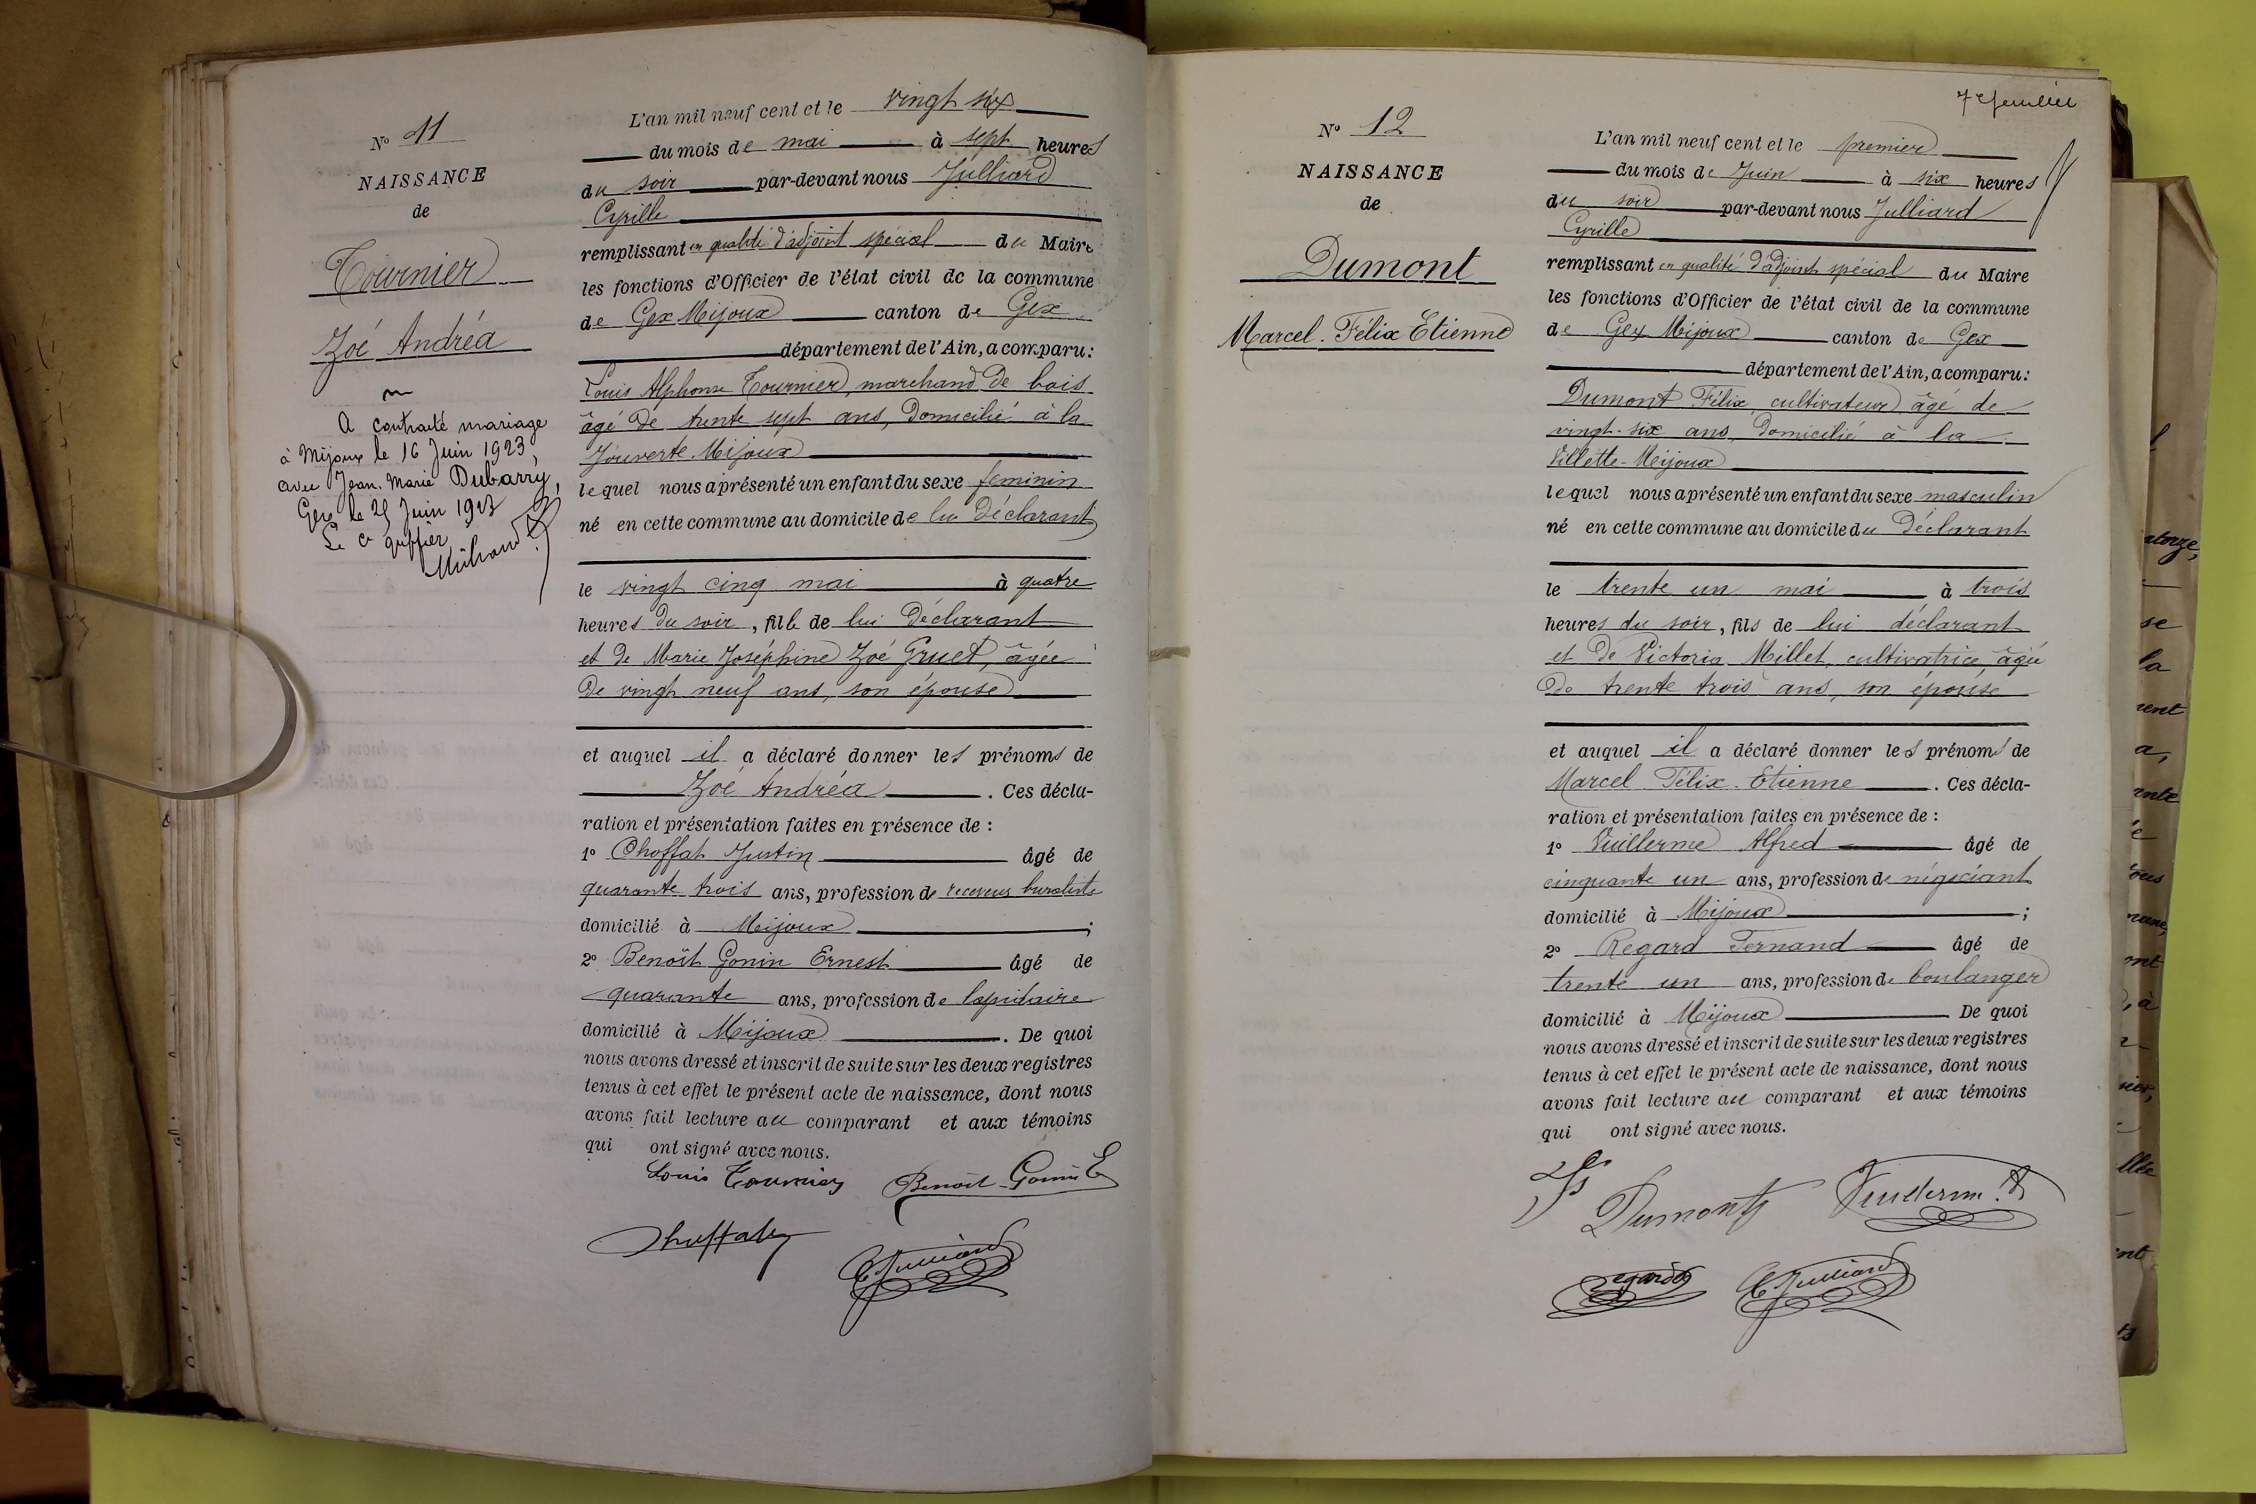 N° 11
NAISSANCE
de
Tournier
Zoé Andréa
A contracté mariage
à Mijoux le 16 Juin 1923,
avec Jean-Marie Dubarry,
Gex le 25 Juin 1923
Le greffier
L'an mil neuf cent et le vingt six
du mois de mai à sept heures
du soir par-devant nous Julliard
Cyrille
remplissant en qualité d'adjoint spécial du Maire
les fonctions d'Officier de l'état civil de la commune
de Gex Mijoux canton de Gex
département de l'Ain, a comparu:
Louis Alphonse Tournier, marchand de bois
âgé de trente sept ans, domicilié à la
Jouverte Mijoux
lequel nous a présenté un enfant du sexe feminin
né en cette commune au domicile de lui déclarant
le vingt cinq mai à quatre
heures du soir, fille de lui déclarant
et de Marie Joséphine Zoé Gruet, âgée
de vingt neuf ans, son épouse
et auquel il a déclaré donner les prénoms de
Zoé Andréa. Ces décla-
ration et présentation faites en présence de :
1° Choffat Justin âgé de
quarante trois ans, profession de receveur buraliste
domicilié à Mijoux ;
2° Benoit Gonin Ernest âgé de
quarante ans, profession de lapidaire
domicilié à Mijoux. De quoi
nous avons dressé et inscrit de suite sur les deux registres
tenus à cet effet le présent acte de naissance, dont nous
avons fait lecture au comparant et aux témoins
qui ont signé avec nous.
Louis Tournier Benoit-Gonin E
Choffat
C. Julliard
7e feuillet
N° 12
NAISSANCE
de
Dumont
Marcel. Félix Etienne
L'an mil neuf cent et le premier
du mois de Juin à six heures
du soir par-devant nous Julliard
Cyrille
remplissant en qualité d'adjoint spécial du Maire
les fonctions d'Officier de l'état civil de la commune
de Gex Mijoux canton de Gex
département de l'Ain, a comparu:
Dumont Félix, cultivateur âgé de
vingt-six ans, domicilié à la
Villette-Mijoux
lequel nous a présenté un enfant du sexe masculin
né en cette commune au domicile du déclarant
le trente un mai à trois
heures du soir, fils de lui déclarant
et de Victoria Millet, cultivatrice, âgée
de trente trois ans, son épouse
et auquel il a déclaré donner les prénoms de
Marcel Félix Etienne. Ces décla-
ration et présentation faites en présence de :
1° Vuillerme Alfred âgé de
cinquante un ans, profession de négociant
domicilié à Mijoux ;
2° Regard Fernand âgé de
trente un ans, profession de boulanger
domicilié à Mijoux De quoi
nous avons dressé et inscrit de suite sur les deux registres
tenus à cet effet le présent acte de naissance, dont nous
avons fait lecture au comparant et aux témoins
qui ont signé avec nous.
Dumont Vuillerme A
Regard C. Julliard